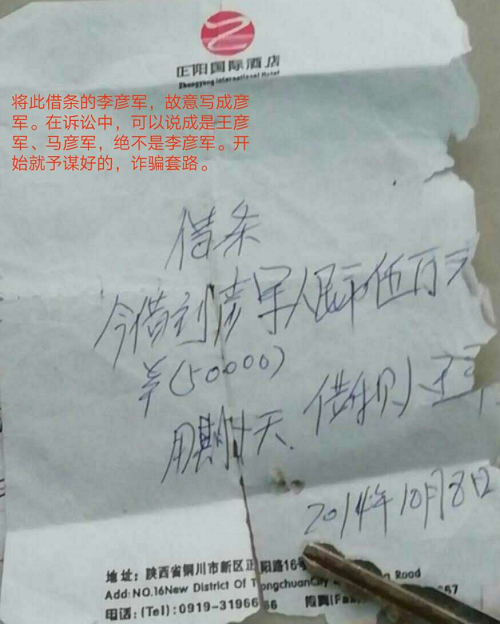 正阳国际酒店
Zhengyang International Hotel
将此借条的李彦军，故意写成彦
军。在诉讼中，可以说成是王彦
军、马彦军，绝不是李彦军。开
始就予谋好的，诈骗套路。
借条
今借到彦军人民币伍万元
¥(50000)
用期十天. 借款人
2014年10月8日
地址：陕西省铜川市新区正阳路16号
Add:NO.16New District Of TongchuanCity Road
电话：(Tel)：0919-3196666 传真(Fax)